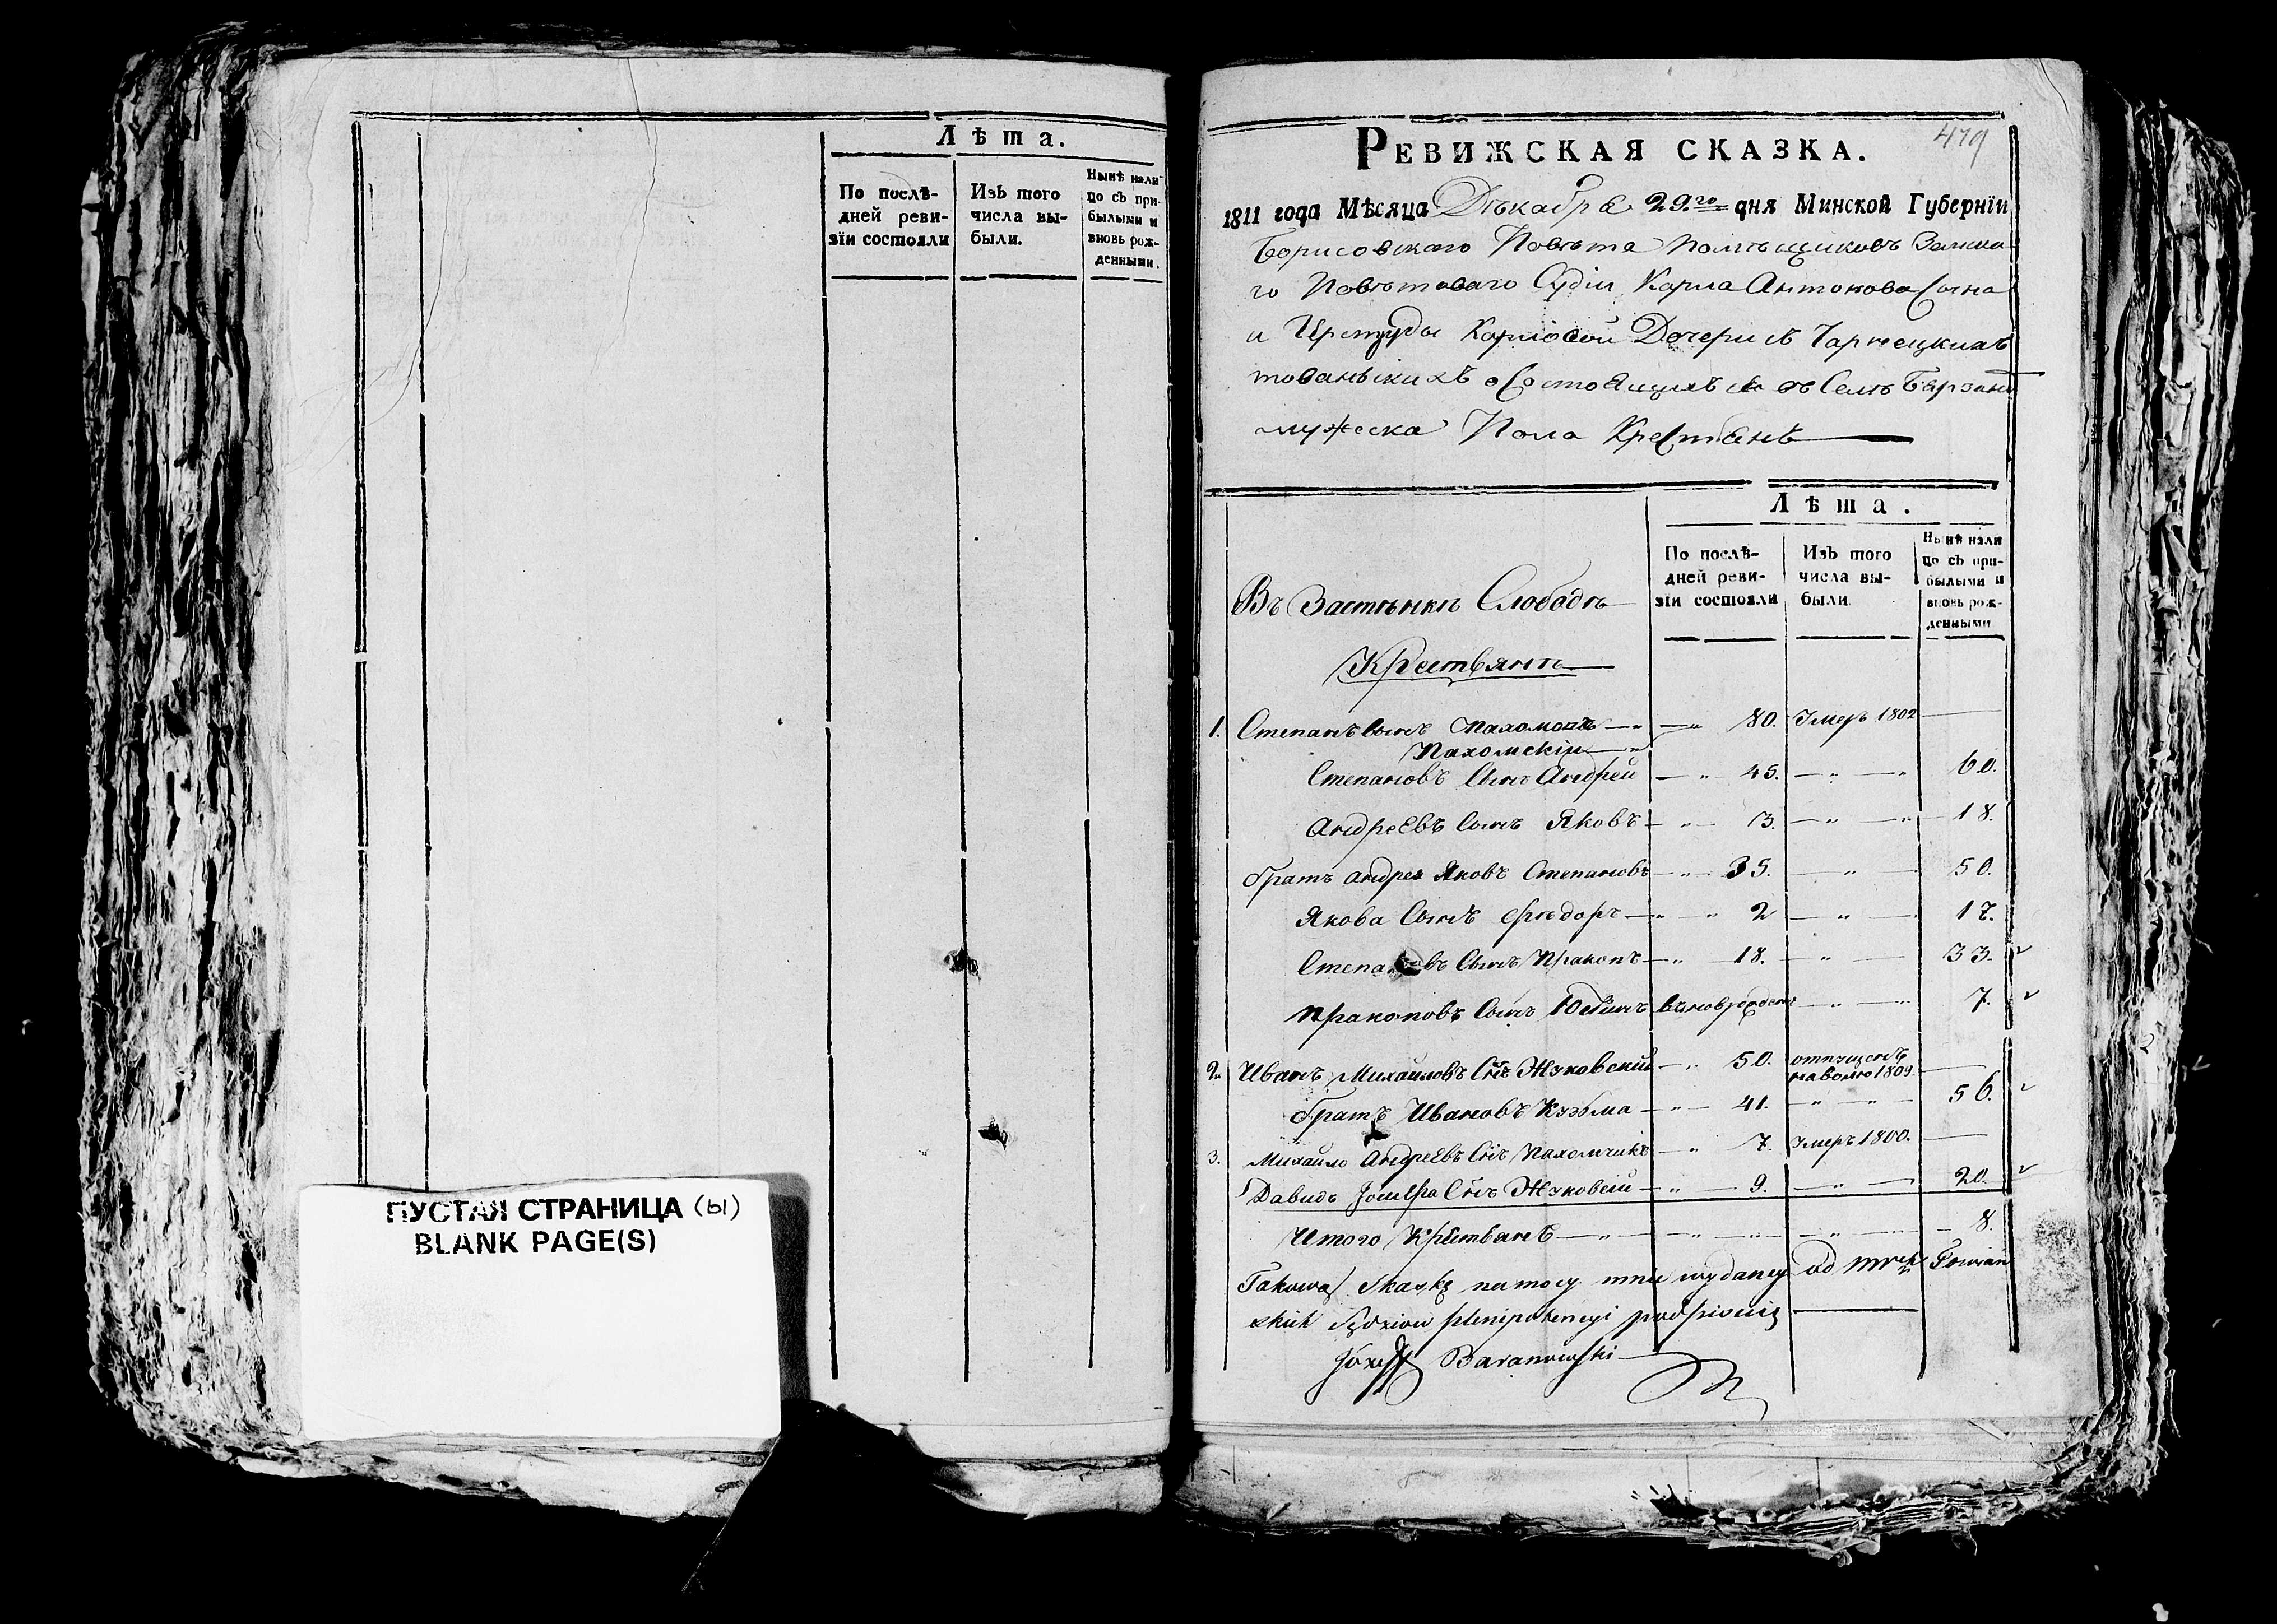 Лѣта.
По послѣ-
дней реви-
зїи состояли
Изъ того
числа вы-
были.
Нынѣ нали-
цо съ при-
былыми и
вновь рож-
денными.
ПУСТАЯ СТРАНИЦА (ы)
BLANK PAGE(S)
479
РЕВИЖСКАЯ СКАЗКА.
1811 года Мѣсяца Декабря 29.го дня Минской Губернїи
Борисовскаго Повѣта Помѣщиковъ Земска-
го Повѣтоваго Судіи Карла Антонова Сына
и Карловой Дочери съ Чарнецкихъ
товяньскихъ о Состоящихъ въ Селѣ
мужеска Пола Крестьянъ
Лѣта.
По послѣ-
дней реви-
зїи состояли
Изъ того
числа вы-
были.
Нынѣ нали
цо съ при-
былыми и
вновь рож-
денными
Въ Застѣнкѣ Слободѣ
Крестьянѣ
1. Степанъ Сынъ 80. Умеръ 1802
Пахомскій
Степановъ Сынъ Андрей 45. 60.
Андреевъ Сынъ Яковъ 3. 18.
Братъ Андрея Яковъ Степановъ 35. 50.
Якова Сынъ Ѳедоръ 2 17.
Степановъ Сынъ Пракопъ 18. 33.
Пракоповъ Сынъ 7.
2. Иванъ Михайловъ Снъ Жуковскій 50. отпущенъ
на волю 1809.
Братъ Ивановъ Кузьма 41. 56.
3. Михайло Андреевъ Снъ Пахомчикъ 7. Умеръ 1800.
Давидъ Іосифа Снъ Жуковски 9. 20.
Итого Крестьянъ 8.
Takową Skaskę na mocy mnie wydaney od Towiań
skich Sędziow plenipotencyi podpisuię
Józeff Baranowski